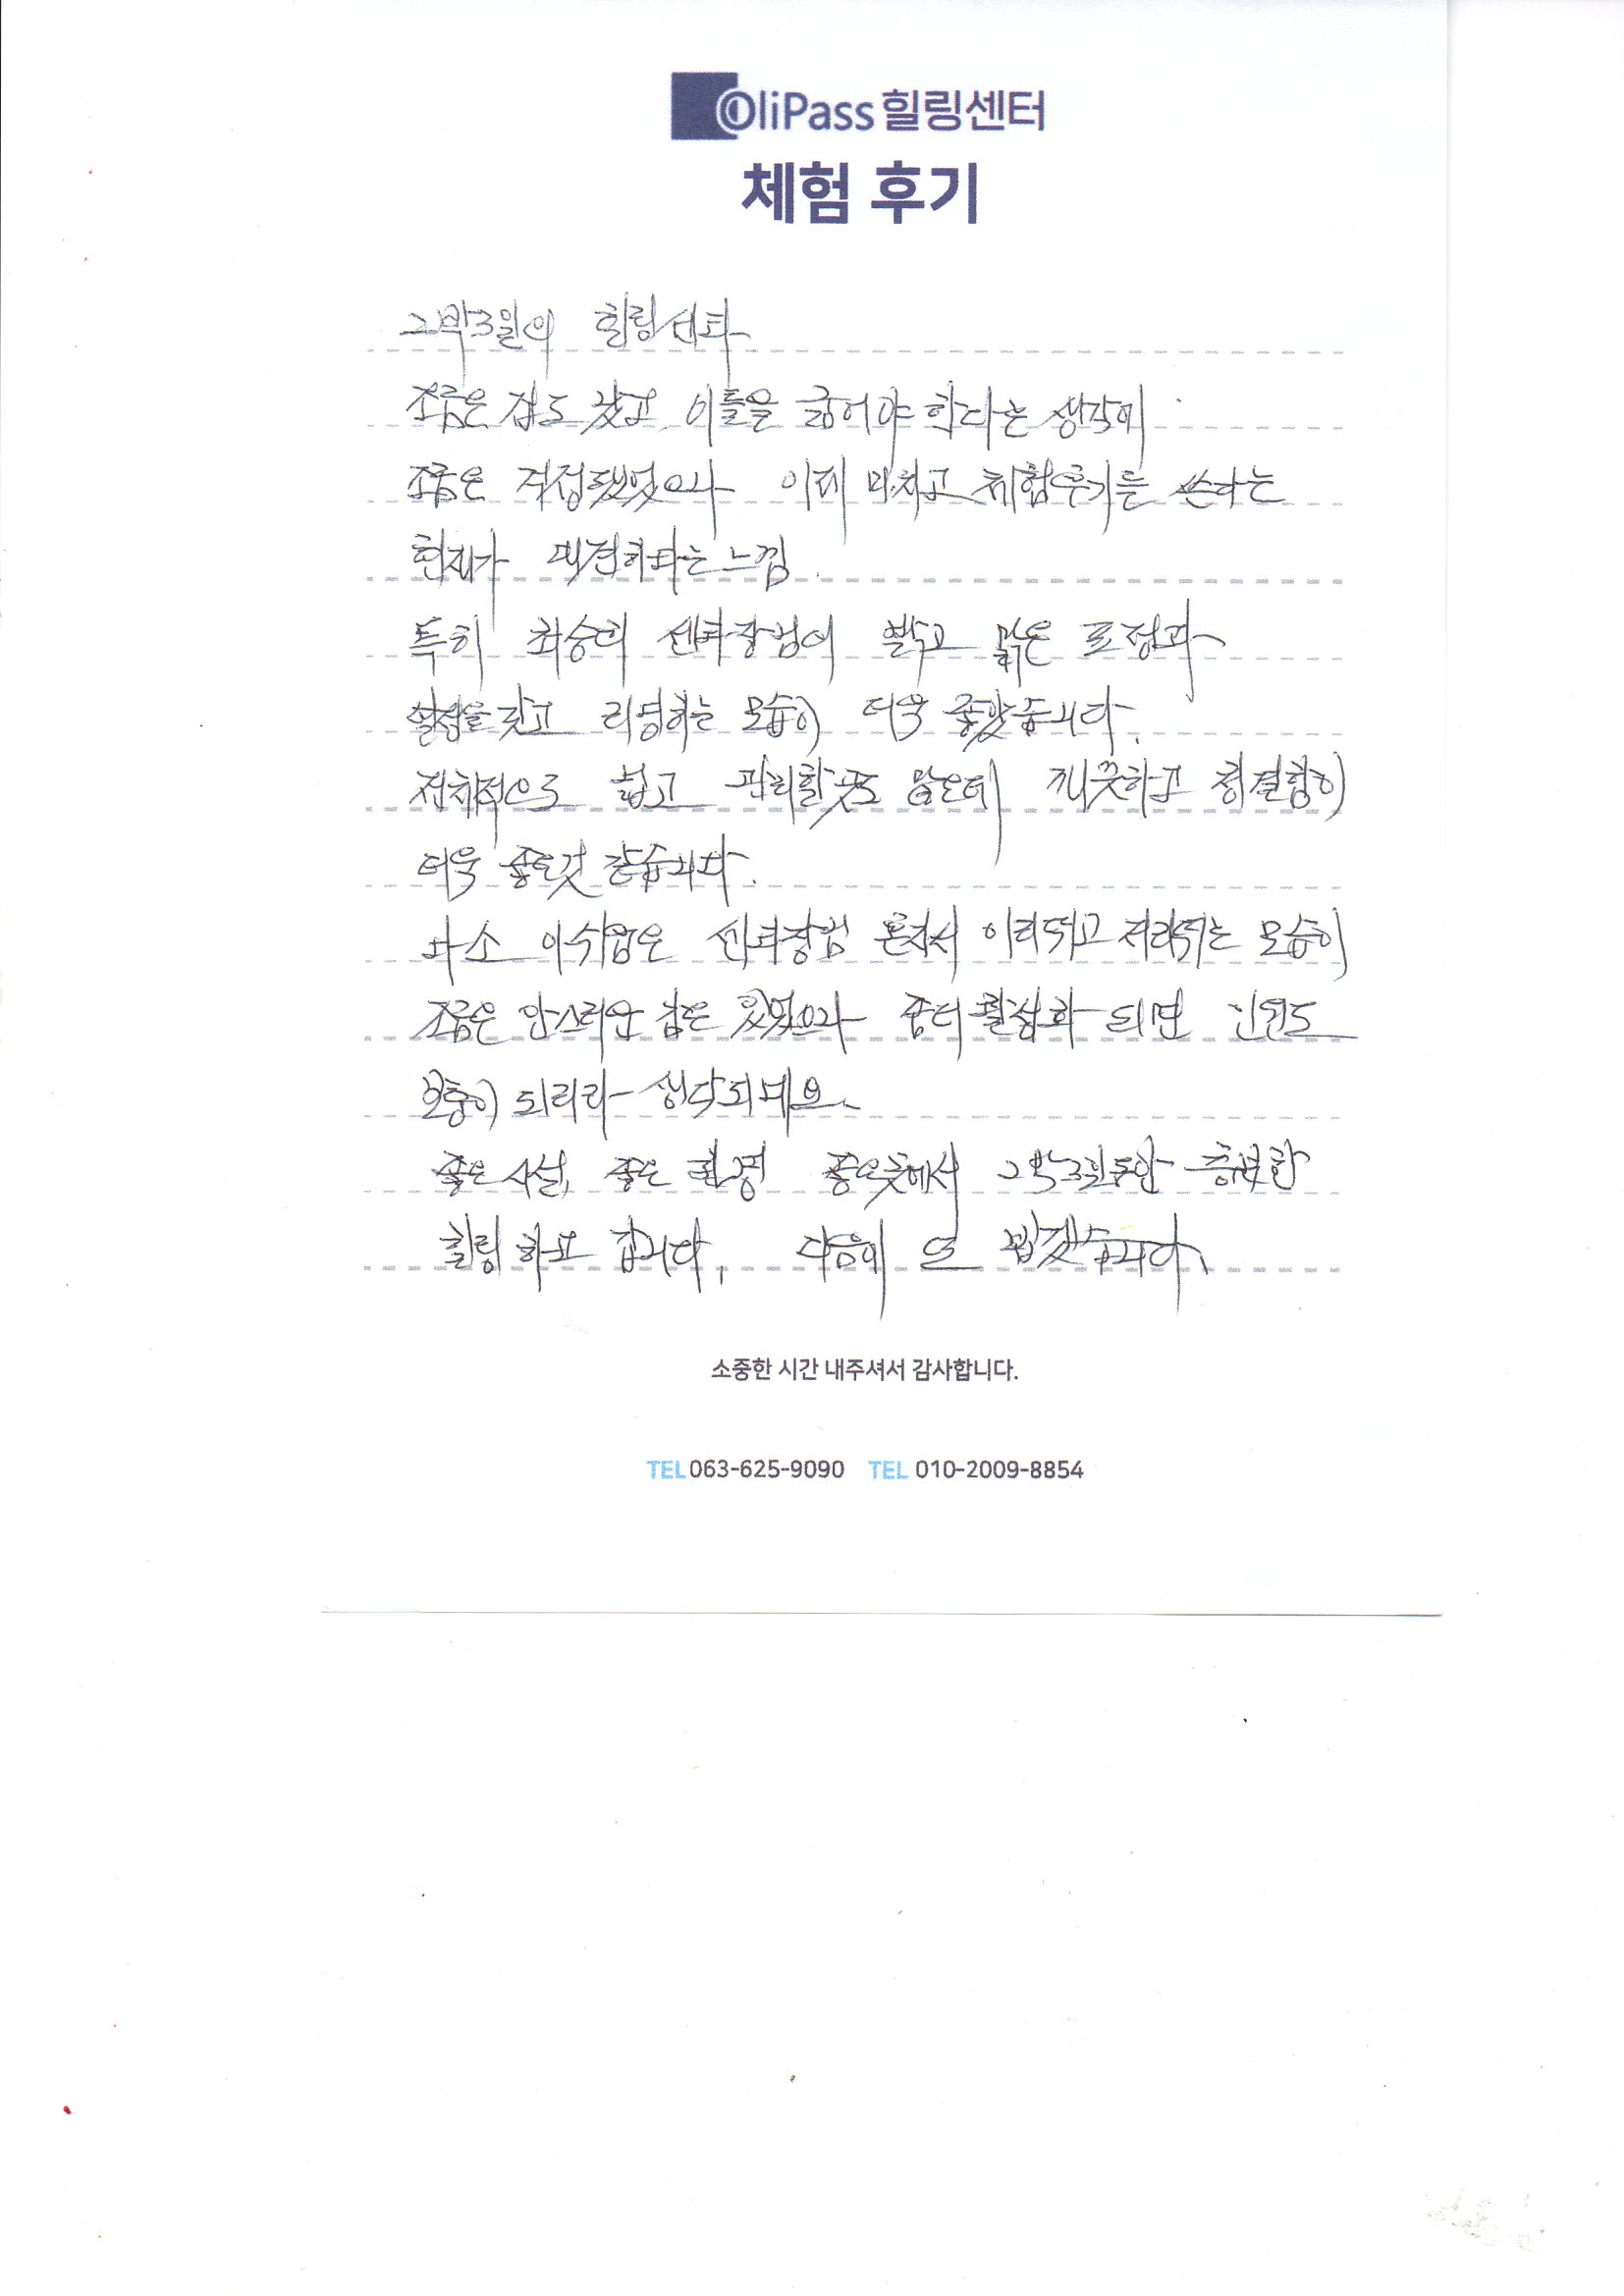 OliPass 힐링센터
체험 후기
2박3일의 힐링센타
조금은 겁도 났고, 이틀을 굶어야 한다는 생각에
조금은 걱정됐었으나 이제 마치고 체험후기를 쓴다는
현재가 대견하다는 느낌.
특히 최승희 센타장님이 밝고 맑은 표정과
열정을 갖고 리딩하는 모습이 더욱 좋았습니다.
전체적으로 넓고 관리할곳도 많은데 깨끗하고 청결함이
더욱 좋은것 같습니다.
다소 아쉬움은 센타장님 혼자서 이리뛰고 저리뛰는 모습이
조금은 안스러운 감은 있었으나 좀더 활성화 되면 인원도
보충이 되리라 생각되네요.
좋은 시설, 좋은 환경 좋은곳에서 2박3일동안 충분한
힐링 하고 갑니다, 다음에 또 뵙겠습니다.
소중한 시간 내주셔서 감사합니다.
TEL 063-625-9090 TEL 010-2009-8854